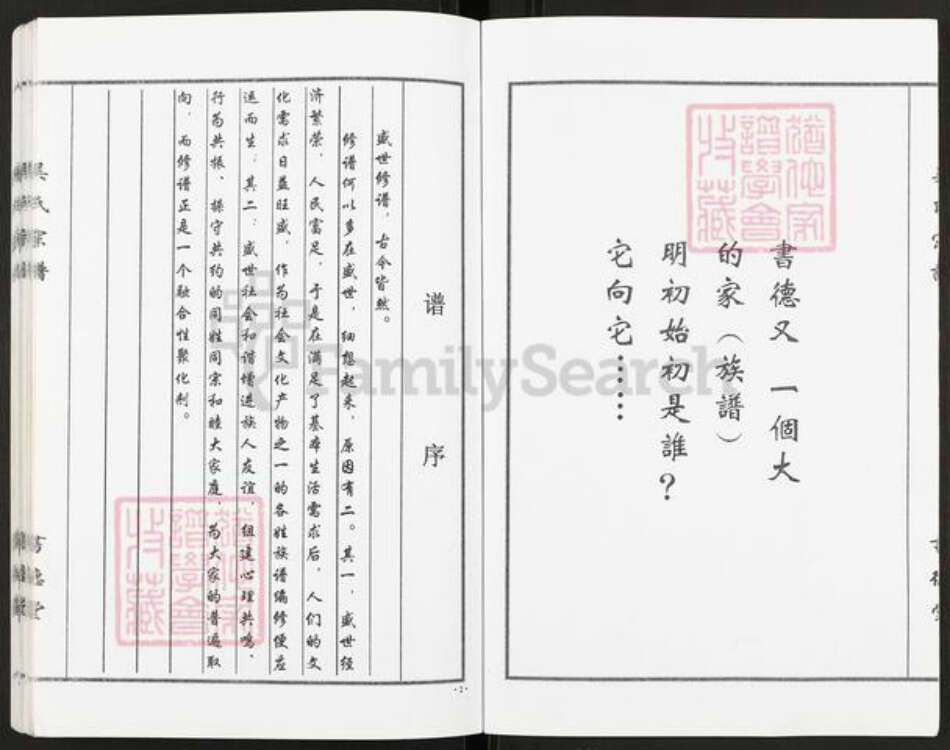 書德又 一個大
的家（族譜）
明初始初是誰？
它向它……
猶他家
譜學會
收藏
谱 序
盛世修谱，古今皆然。
修谱何以多在盛世，细想起来，原因有二。其一，盛世经
济繁荣，人民富足，于是在满足了基本生活需求后，人们的文
化需求日益旺盛，作为社会文化产物之一的各姓族谱编修便应
运而生；其二：盛世社会和谐增进族人友谊，组建心理共鸣、
行为共振、操守共约的同姓同宗和睦大家庭，为大家的普遍取
向，而修谱正是一个融合性聚化剂。
猶他家
譜學會
收藏
·2·
吴氏宗谱
FamilySearch